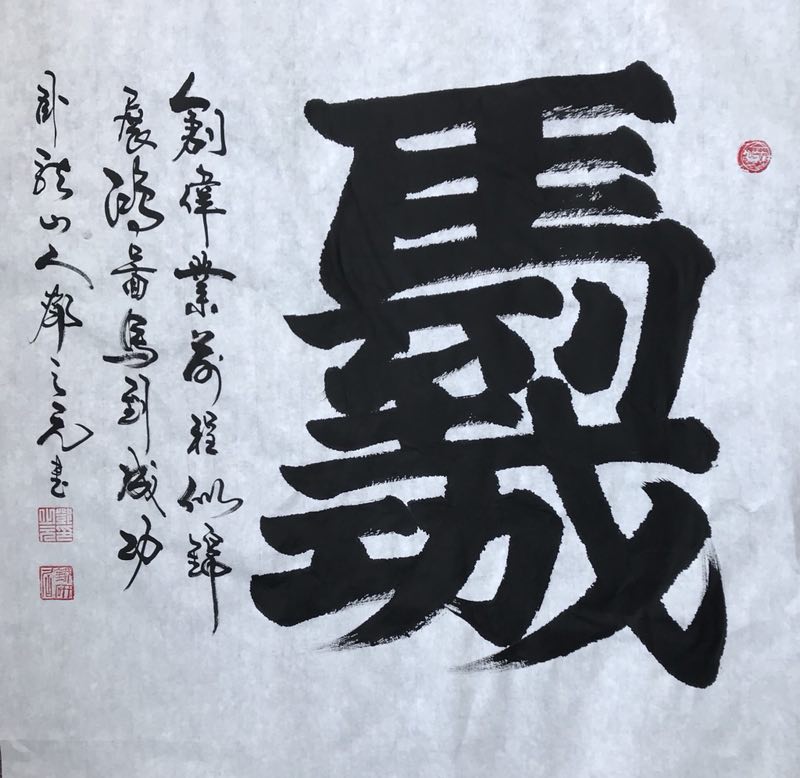 馬到成功
創偉業前程似錦
展鴻圖馬到成功
卧龍山人之元書